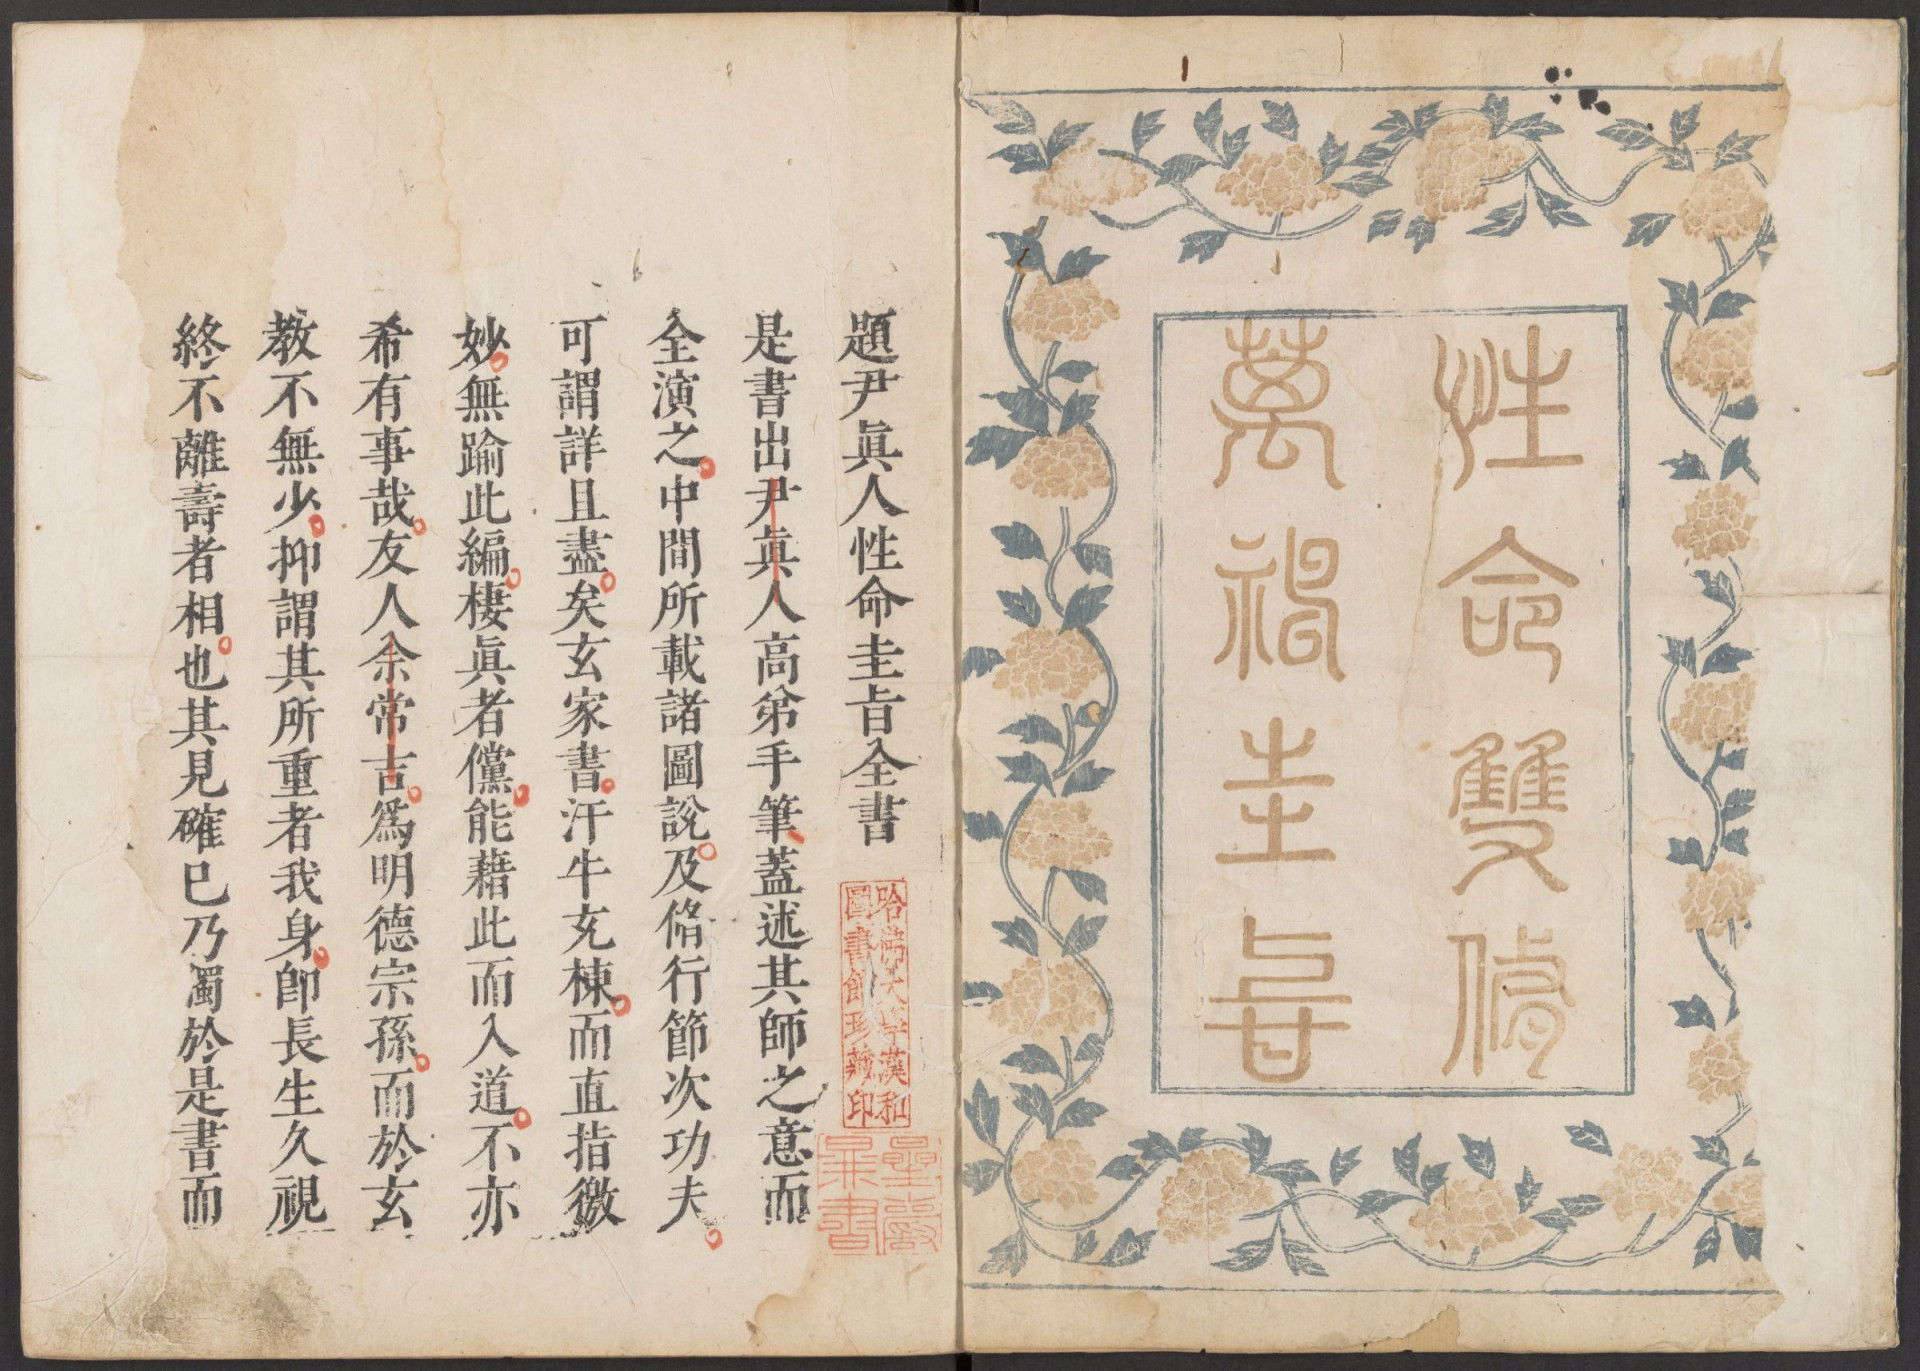 性命雙脩
萬神圭旨
題尹眞人性命圭旨全書
是書出尹眞人高弟手筆蓋述其師之意而
全演之中間所載諸圖說及脩行節次功夫
可謂詳且盡矣玄家書汗牛充棟而直指徼
妙無踰此編棲眞者儻能藉此而入道不亦
希有事哉友人余常吉爲明德宗孫而於玄
教不無少抑謂其所重者我身卽長生久視
終不離壽者相也其見確已乃獨於是書而
哈佛大學漢和
圖書館珍藏印